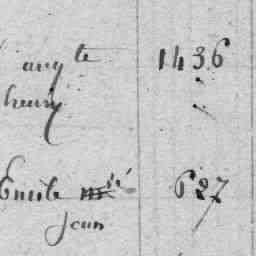 aug te 1436
henry
Emile m ié 627
Jean